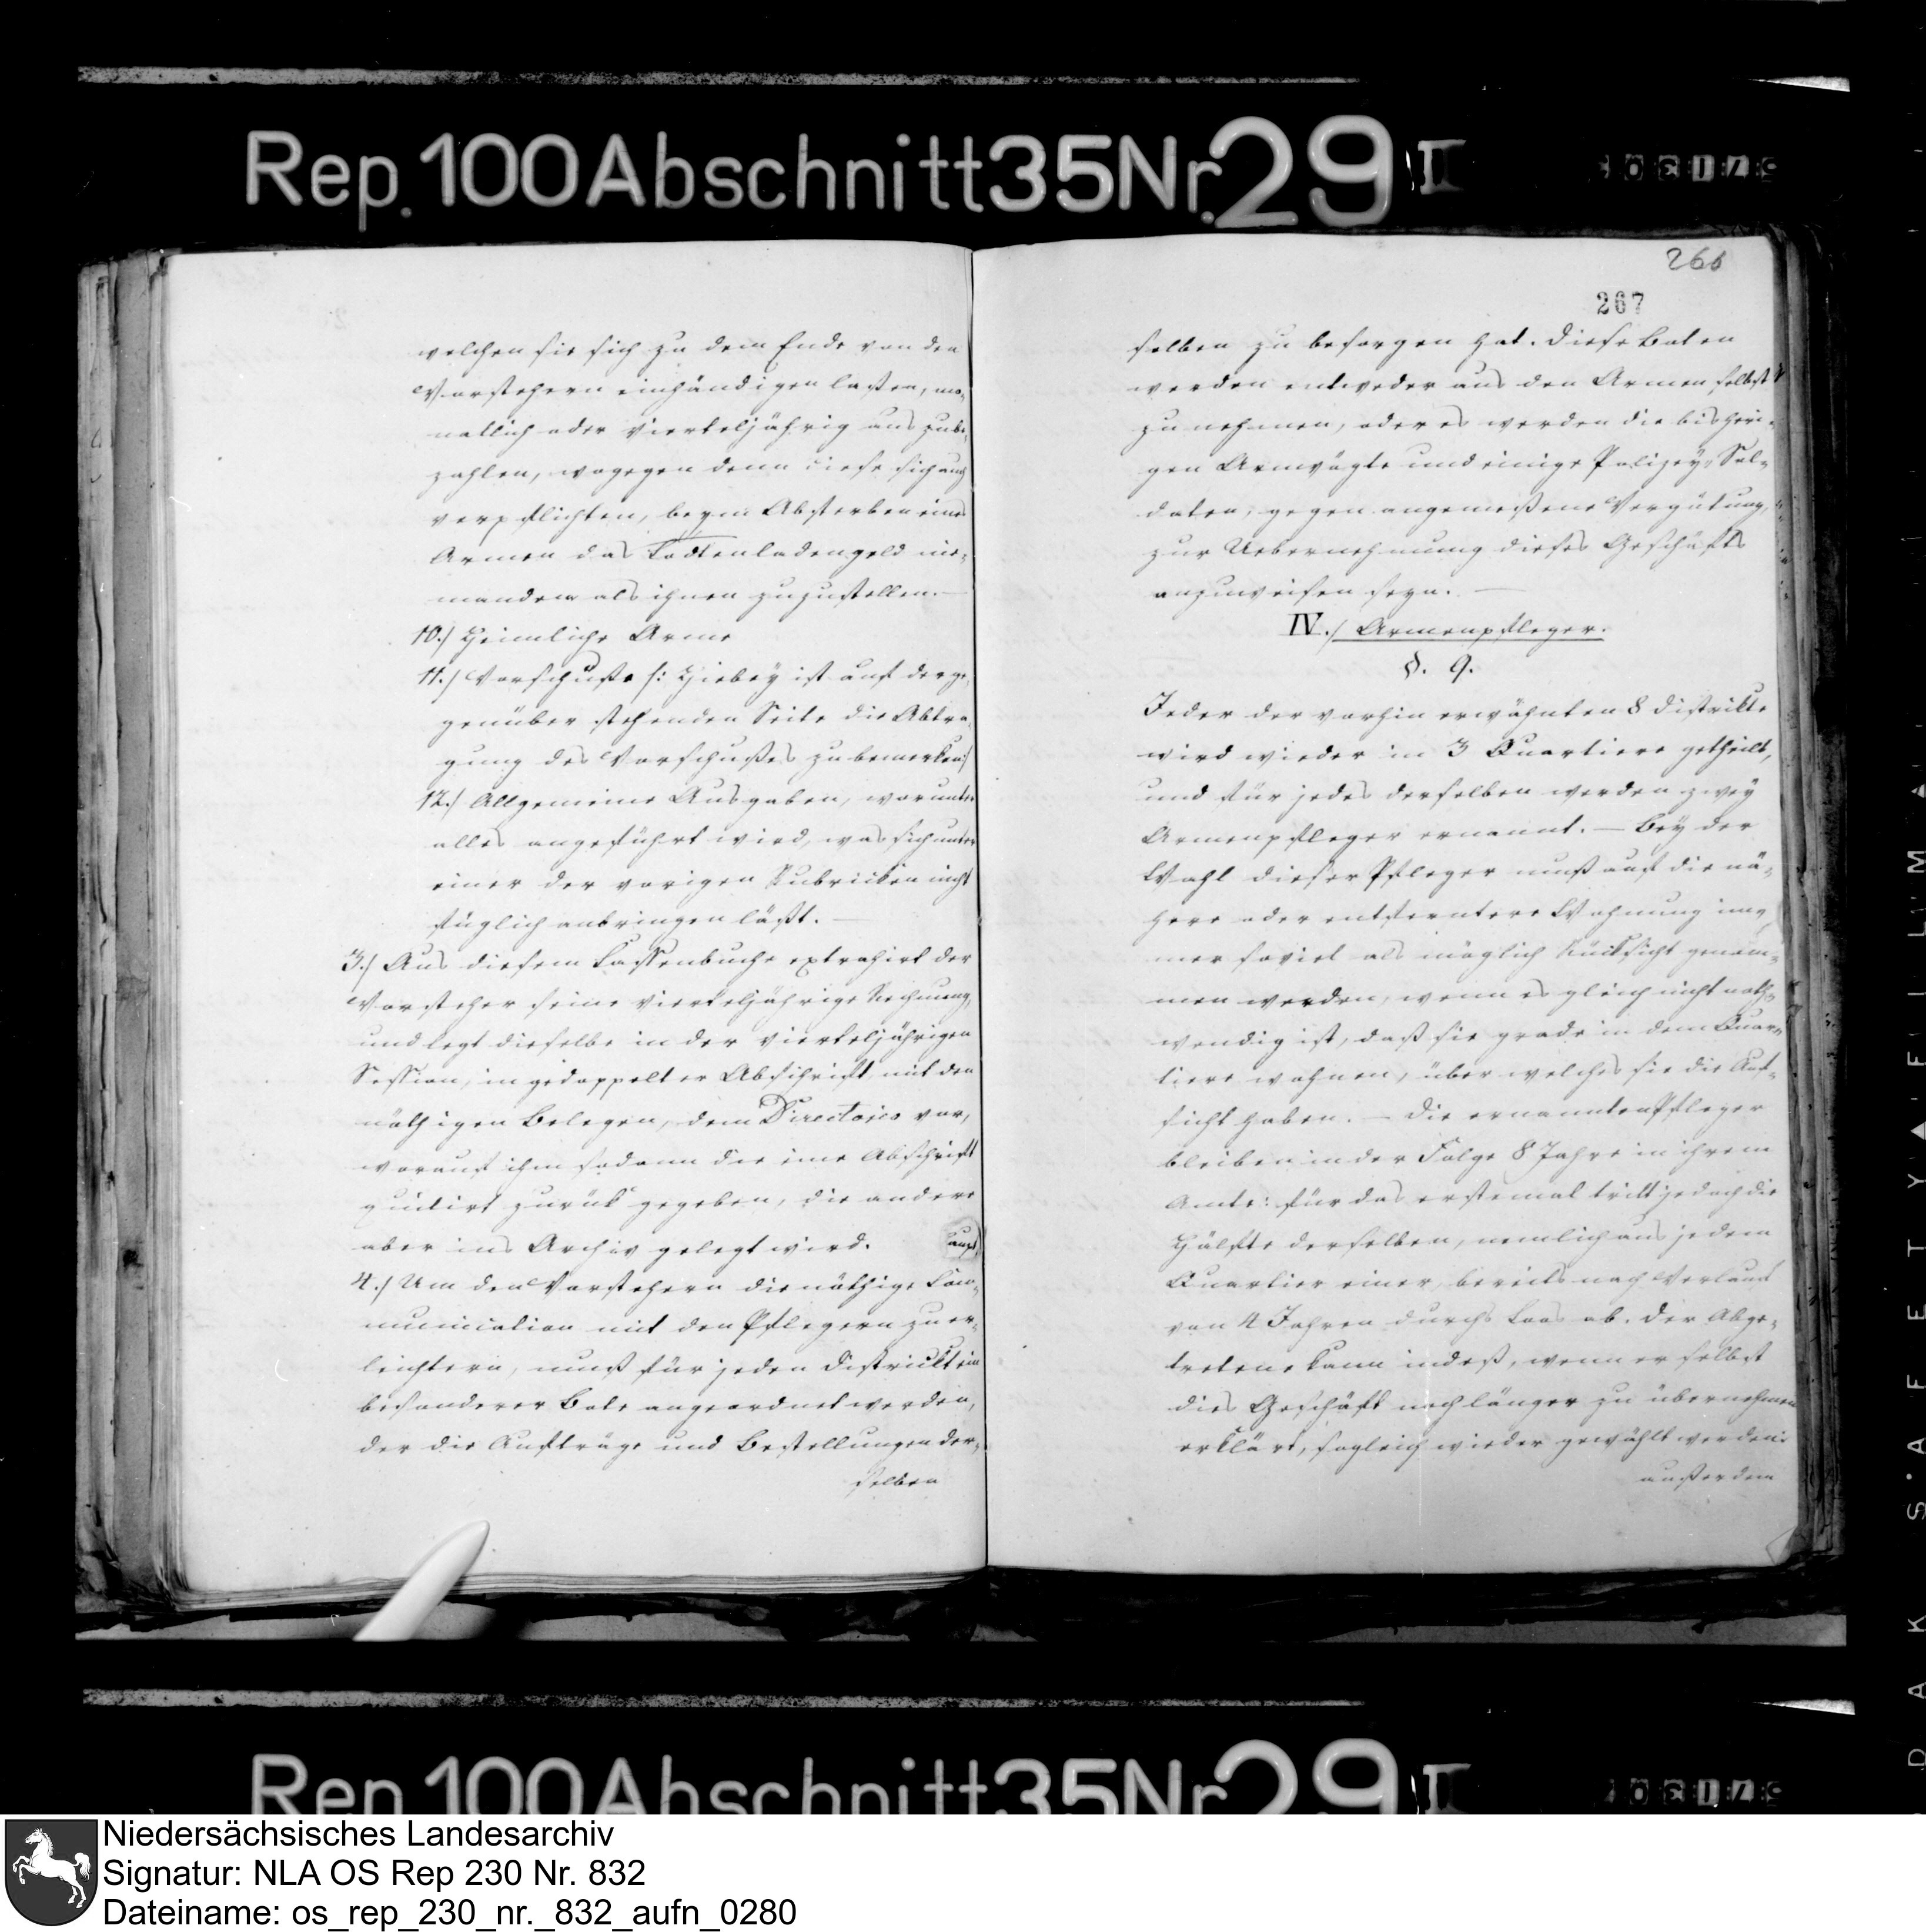 Rep. 100 Abschnitt 35 Nr. 29 I
welchen sie sich zu dem Ende von den
Vorstehern einhändigen laßen, mo-
natlich oder vierteljährig aus zube-
zahlen, wogegen denn diese sich auch
verpflichten, beym Absterben eines
Armen das Todtenladengeld nie-
mandem als ihnen zuzustellen. —
10./ Heimliche Arme
11./ Vorschuße /: Hiebey ist auf der ge-
genüber stehenden Seite die Abtra-
gung des Vorschußes zu bemerken :/
12./ Allgemeine Ausgaben, worunter
alles angeführt wird, was sich unter
einer der vorigen Rubricken nicht
füglich anbringen läßt. —
3./ Aus diesem Cassenbuche extrahirt der
Vorsteher seine vierteljährige Rechnung,
und legt dieselbe in der vierteljährigen
Session, in gedoppelter Abschrift, mit den
nöthigen Belegen, dem Directorio vor,
worauf ihm sodann die eine Abschrift
quitirt zurük gegeben, die andere
aber ins Archiv gelegt wird.
4./ Um den Vorstehern die nöthige Com-
munication mit den Pflegern zu er-
leichtern, muß für jeden District ein
besonderer Bote angeordnet werden,
der die Aufträge und Bestellungen der-
selben
266
267
selben zu besorgen hat. Diese Boten
werden entweder aus den Armen selbst
zu nehmen, oder es werden die bisheri-
gen Armvögte und einige Polizey-Sol-
daten, gegen angemeßene Vergütung,
zur Uebernehmung dieses Geschäfts
anzuweisen seyn. —
IV./ Armenpfleger.
§. 9.
Jeder der vorhin erwähnten 8 Distrikte
wird wieder in 3 Quartiere getheilt,
und für jedes derselben werden zwey
Armenpfleger ernannt. — Bey der
Wahl dieser Pfleger muß auf die nä-
here oder entferntere Wohnung im-
mer soviel als möglich Rücksicht genom-
men werden, wenn es gleich nicht noth-
wendig ist, daß sie grade in dem Quar-
tiere wohnen, über welches sie die Auf-
sicht haben. — Die ernannten Pfleger
bleiben in der Folge 8 Jahre in ihrem
Amte: für das erstemal tritt jedoch die
Hälfte derselben, nemlich aus jedem
Quartier einer, bereits nach Verlauf
von 4 Jahren durchs Loos ab. Der Abge-
tretene kann indeß, wenn er selbst
dies Geschäft noch länger zu übernehmen
erklärt, sogleich wieder gewählt werden:
außerdem
Rep. 100 Abschnitt 35 Nr. 29 I
Niedersächsisches Landesarchiv
Signatur: NLA OS Rep 230 Nr. 832
Dateiname: os_rep_230_nr._832_aufn_0280